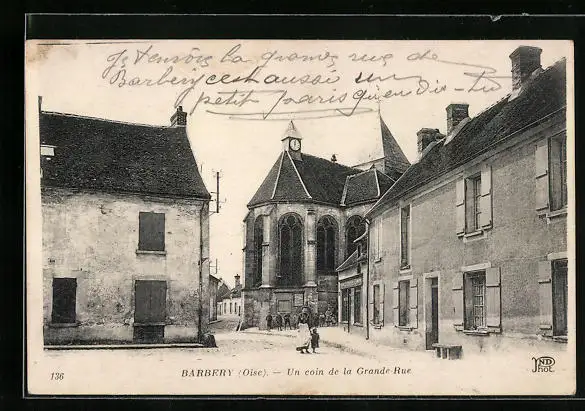 Je t'envois la grande rue de
Barbery c'est aussi un
petit paris qu'en dis-tu
136
BARBERY (Oise). — Un coin de la Grande Rue
ND
Phot